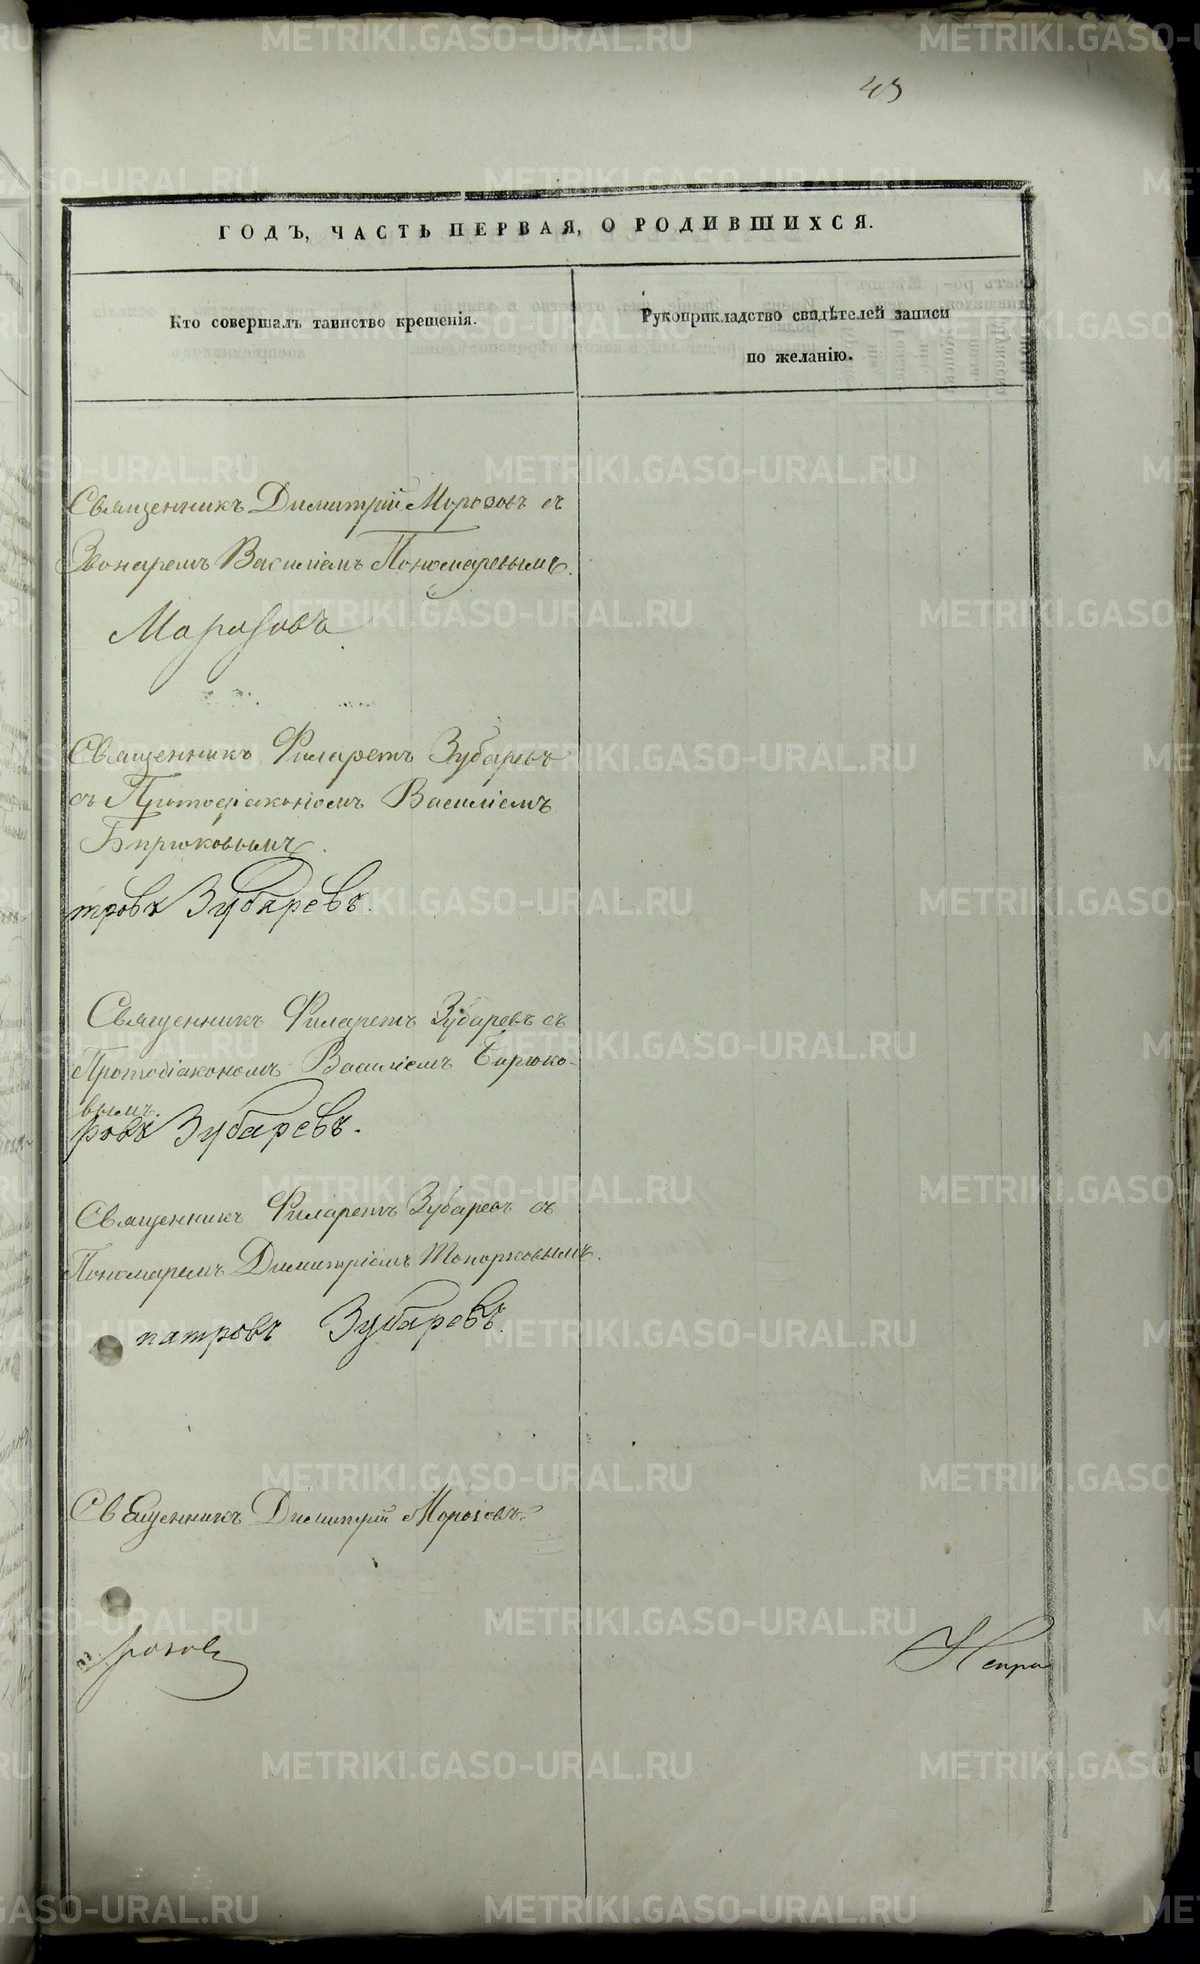 43
ГОДЪ, ЧАСТЬ ПЕРВАЯ, О РОДИВШИХСЯ.
Кто совершалъ таинство крещенія.
Рукоприкладство свидѣтелей записи
по желанію.
Священникъ Димитрій Морозовъ съ
Звонаремъ Василіемъ Пономаревымъ.
Морозовъ
Священникъ Филаретъ Зубаревъ
съ Протодіакономъ Василіемъ
Бирюковымъ.
тровъ Зубаревъ.
Священникъ Филаретъ Зубаревъ съ
Протодіакономъ Василіемъ Бирюко-
вымъ.
ровъ Зубаревъ.
Священникъ Филаретъ Зубаревъ съ
Пономаремъ Димитріемъ Топорковымъ.
патровъ Зубаревъ.
Священникъ Димитрій Морозовъ.
розовъ
METRIKI.GASO-URAL.RU